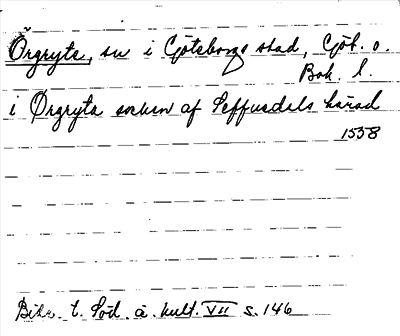 Örgryte, sn i Göteborgs stad, Göt. o.
Boh. l.
i Ørgryta socken af Seffuedals härad
1558
Bidr. t. Söd. å. kult. VII s. 146